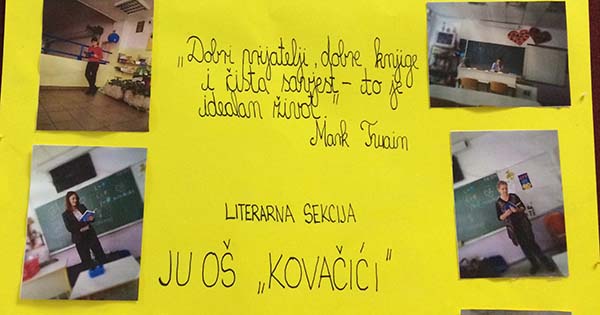 „Dobri prijatelji, dobre knjige
i čista savjest – to je
idealan život.”
Mark Twain
LITERARNA SEKCIJA
JU OŠ „KOVAČIĆI”